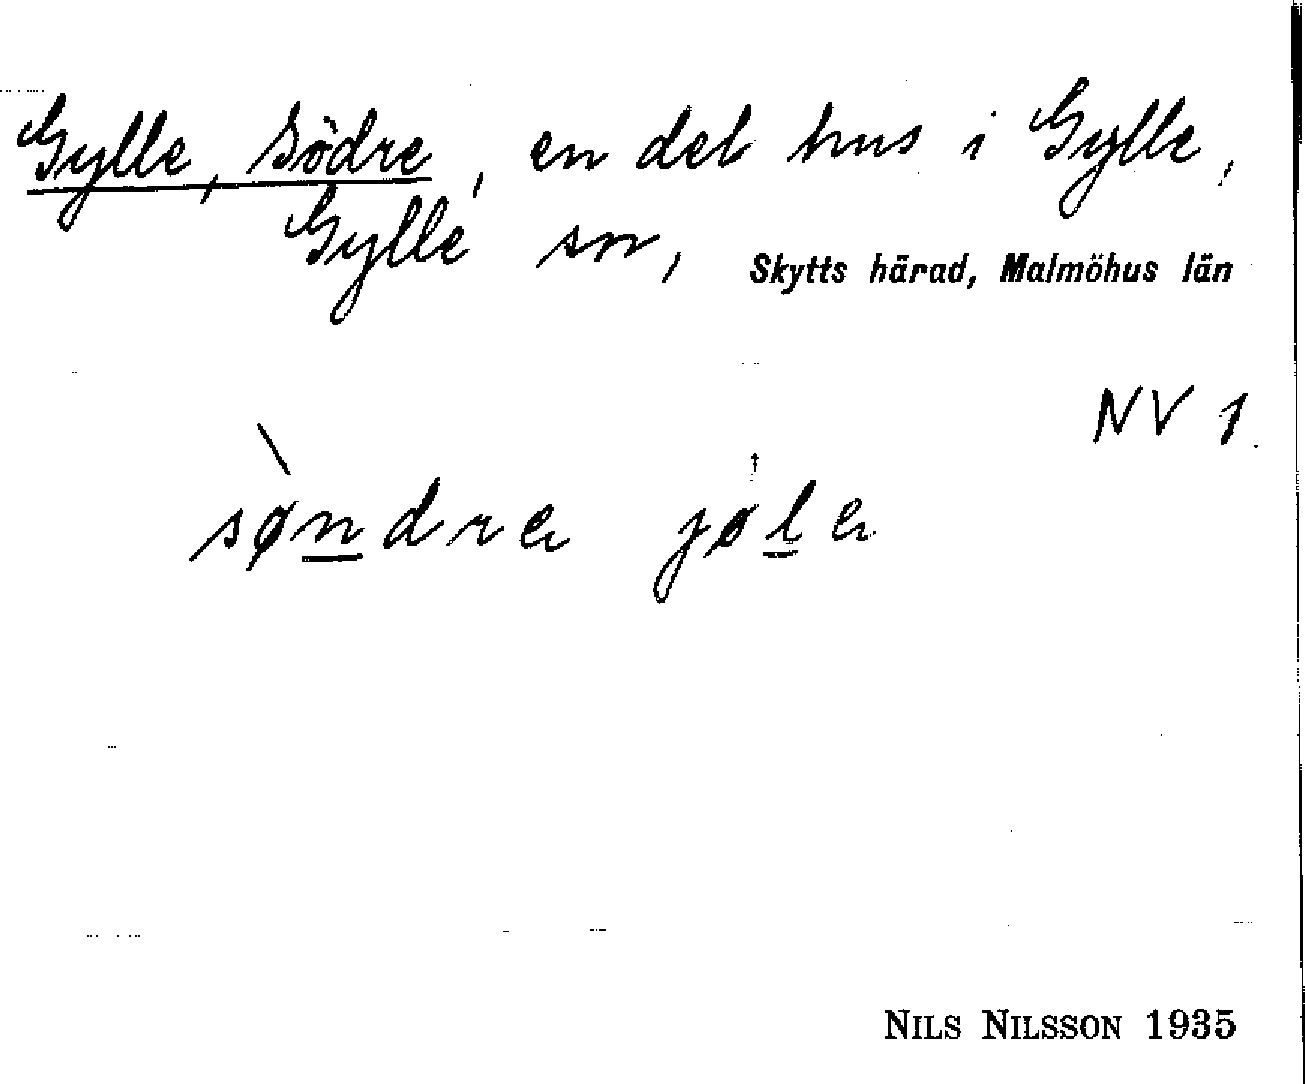 Gylle, Södre, en del hus i Gylle,
Gylle sn, Skytts härad, Malmöhus län
NV 1
søndrə jølə
NILS NILSSON 1935